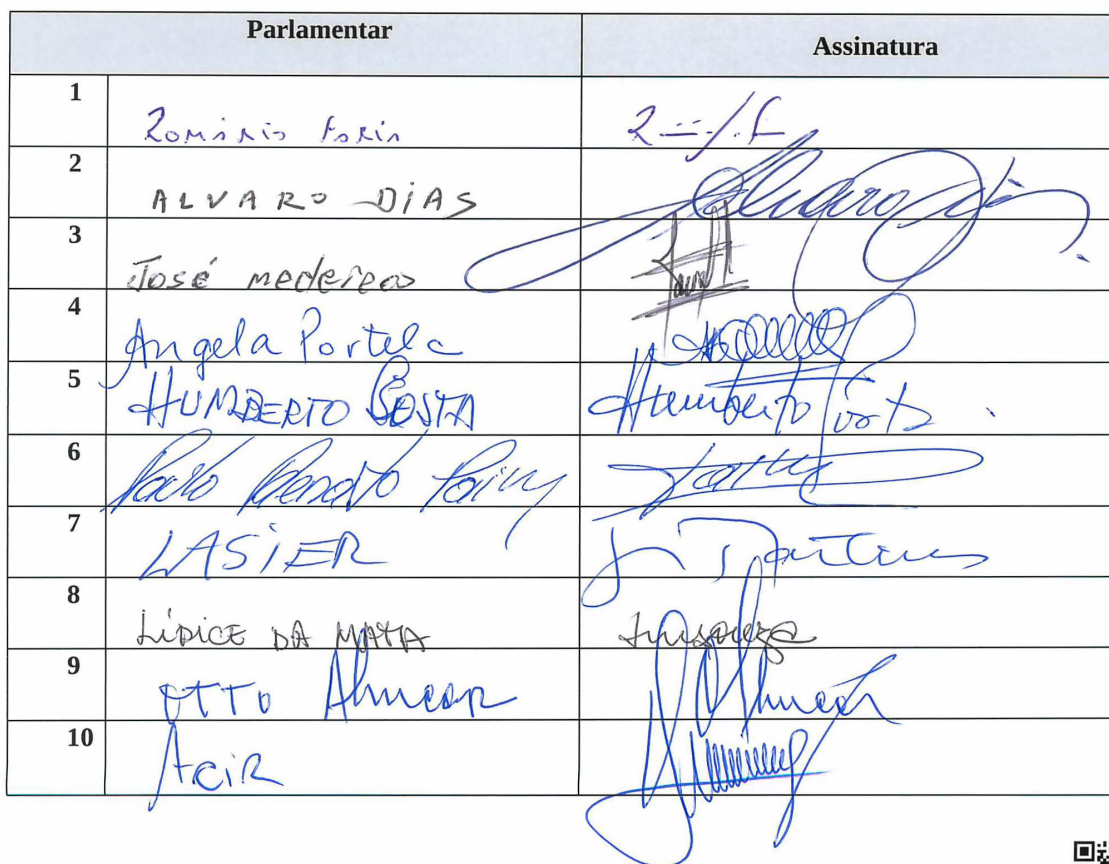 Parlamentar Assinatura
1 Romário Faria
2 ALVARO DIAS Alvaro Dias
3 José medeiros
4 Angela Portela
5 HUMBERTO COSTA Humberto Costa
6 Paulo Renato Paim
7 LASIER
8 LÍDICE DA MATA
9 OTTO Alencar
10 Acir